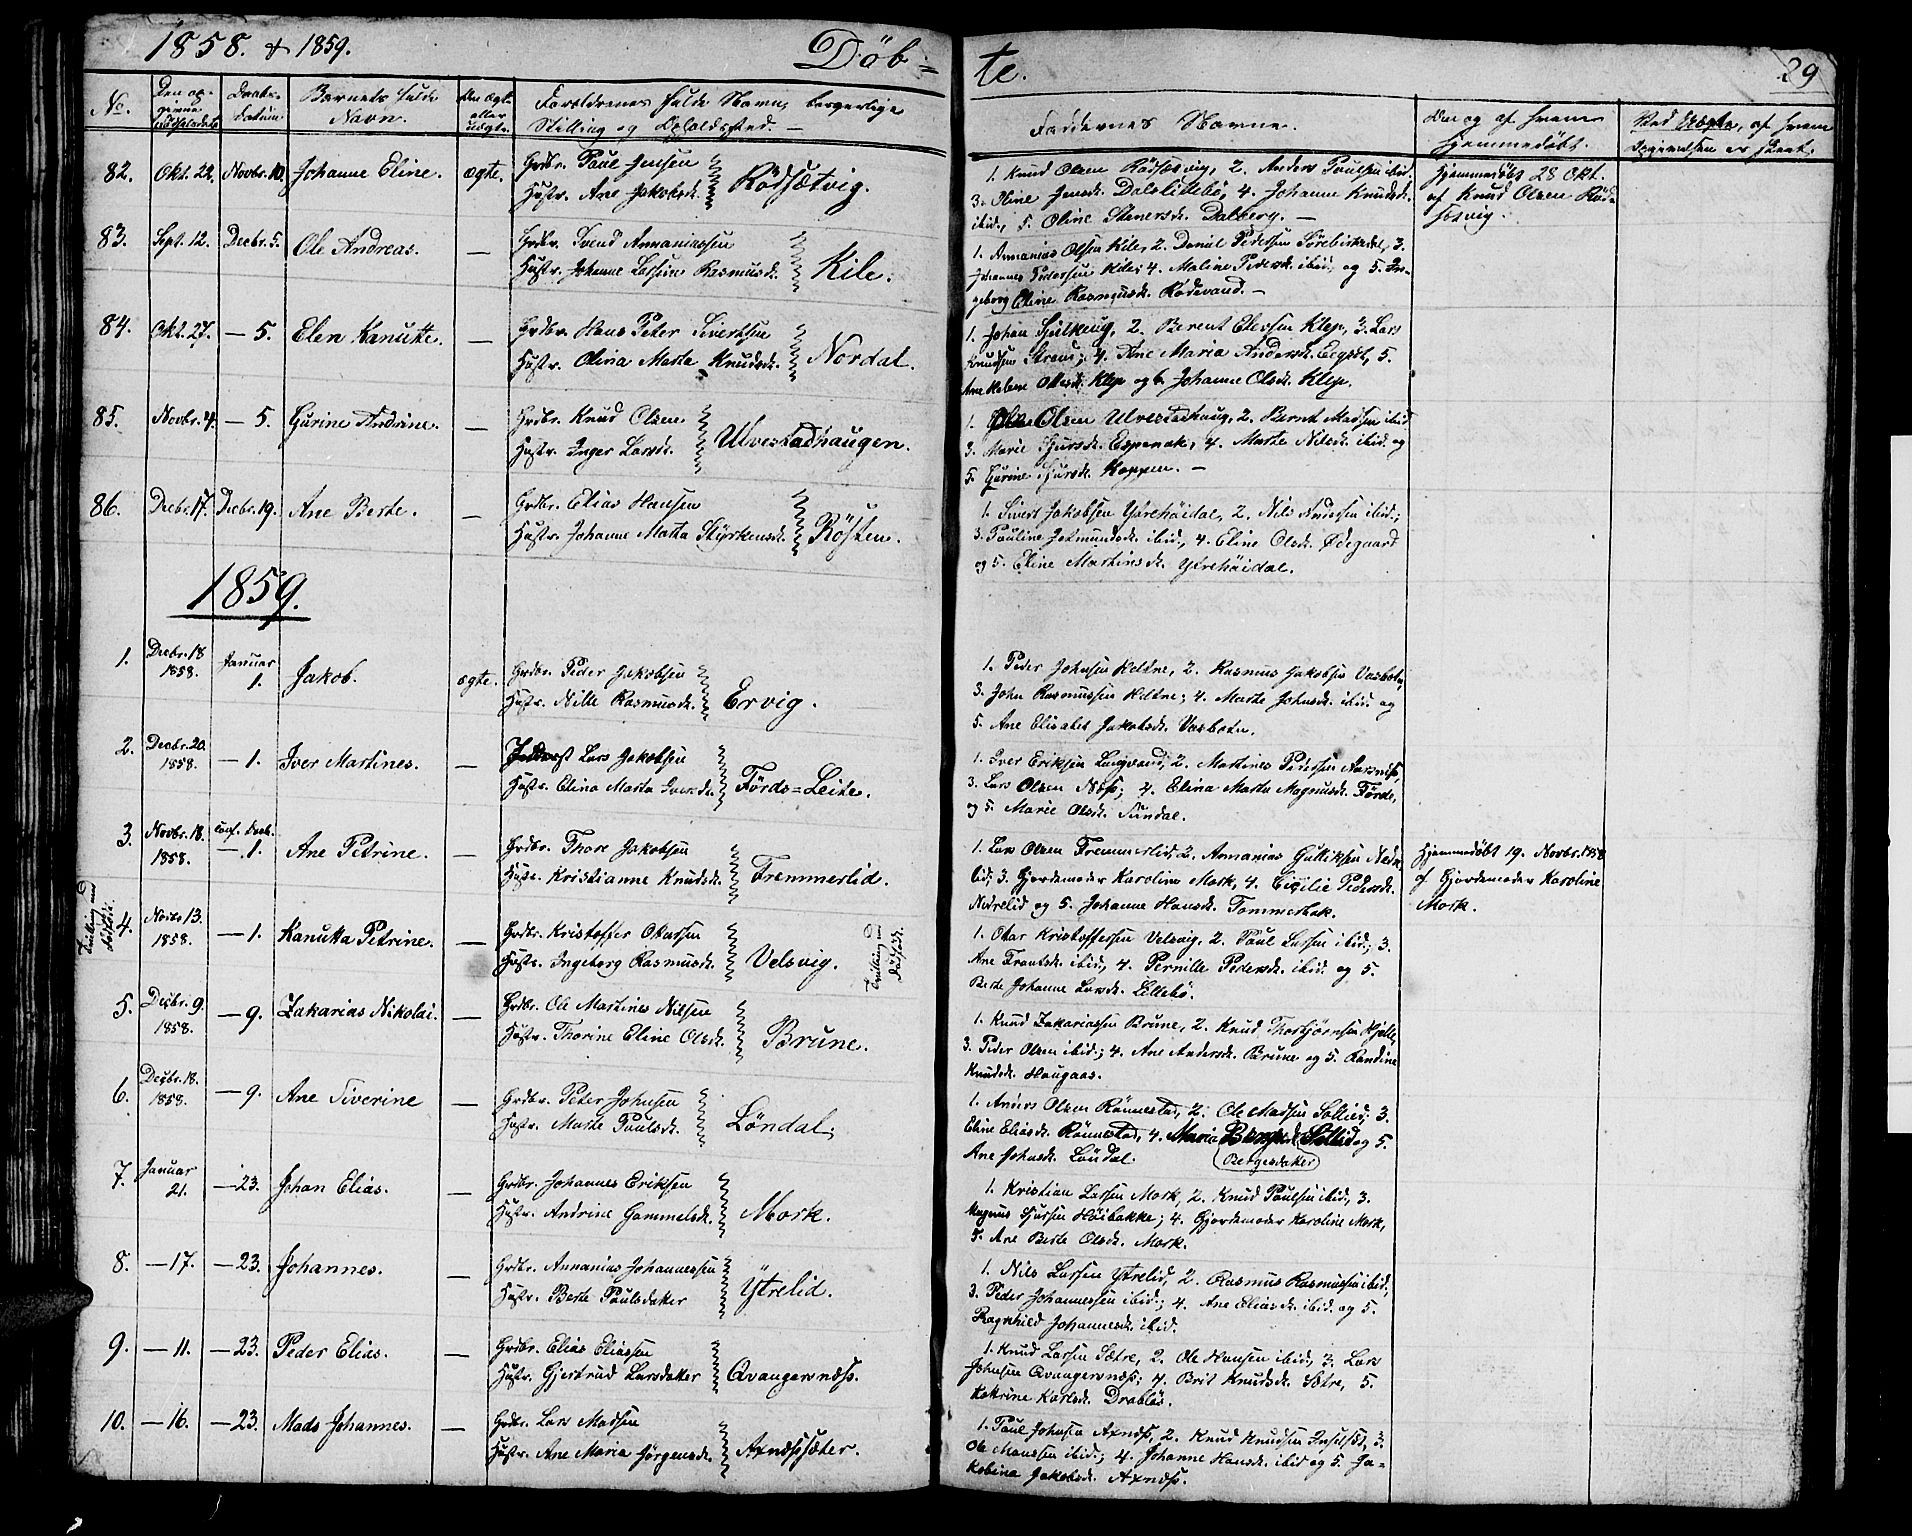 1858. & 1859. Döb-te. 29
No. Den opgivne Födselsdato Daabsdatum Barnets fulde Navn. Om Ægte eller uægte. Forældrenes fulde Navne, borgerlige Stilling og Opholdssted. Faddernes Navne. Om og af hvem hjemmedøbt. Ved Uægte, af hvem
82. Okt. 22. Novbr. 10. Johanne Eline. ægte. Grdbr. Paul Jensen
Hustr. Ane Jakobsd. Rödsætvig.
1. Knud Olsen Rödsesvig, 2. Anders Paulsen ibid.
3. Oline Jensd. Dalslittebø, 4. Johanne Knudsd.
ibid., 5. Oline Stenersd. Dalberg. —
Hjemmedøbt 28 Okt.
af Knud Olsen Röd-
sesvig.
83. Sept. 12. Decbr. 5. Ole Andreas. — Grdbr. Svend Annaniassen
Hustr. Johanne Larsine Rasmusd. Kile.
1. Annanias Olsen Kile, 2. Daniel Pedersen Sørebirkedal, 3.
Johannes Pedersen Kile; 4. Maline Pedersd. ibid. og 5. In-
geborg Oline Rasmusd. Rödevand. —
84. Okt. 27. — 5. Elen Kanutte. — Grdbr. Hans Peter Sivertsen
Hustr. Olina Marte Knudsd. Nordal.
1. Johan 2. Berent Elessen Klep, 3. Lars
Knudsen Strand; 4. Ane Maria Andersd. Eegset, 5.
Ane Helene Ottesd. Klep og 6. Johanne Olsd. Klep.
85. Novbr. 4. — 5. Gurine Andrine. — Grdbr. Knud Olsen.
Hustr. Inger Larsd. Ulvestadhaugen.
1. Ole Olsen Ulvestadhaug, 2. Bernt Madsen ibid
3. Marie Sjursd. Espenak, 4. Marte Nilsd. ibid. og
5. Gurine Sjursd. Koppen. —
86. Decbr. 17. Decbr. 19. Ane Berte. — Grdbr. Elias Hansen
Hustr. Johanne Marta Styrkersd. Rösten.
1. Sivert Jakobsen Yttrehöidal, 2. Nils Andersen ibid.;
3. Pauline Jetmundsd. ibid., 4. Eline Olsd. Ødegaard
og 5. Eline Martinsd. Ytrehöidal.
1859.
1. Decbr. 18 1858. Januar 1. Jakob. ægte. Grdbr. Peder Jakobsen
Hustr. Nille Rasmusd. Ervig.
1. Peder Johnsen Heltne, 2. Rasmus Jakobsen Vasbotn,
3. John Rasmussen Heltne; 4. Marte Johnsd. ibid. og
5. Ane Elisabet Jakobsd. Vasbotn.
2. Decbr. 20. 1858. — 1. Iver Martines. — Lars Jakobsen
Hustr. Elina Marta Iversd. Förds=Leite.
1. Iver Eriksen Langvand, 2. Martines Pedersen Aarsnes,
3. Lars Olsen Næss; 4. Elina Marta Magnusd. Förde,
og 5. Marie Olsd. Sundal.
3. Novbr. 18. 1858. Conf. Daab. — 1. Ane Petrine. — Grdbr. Thore Jakobsen
Hustr. Kristianne Knudsd. Fremmerlid.
1. Lars Olsen Fremmerlid, 2. Annanias Gulliksen Nedre-
lid; 3. Gjordemoder Karoline Mork, 4. Cicilie Pedersd.
Nedrelid og 5. Johanne Hansd. Tommerbak.
Hjemmedøbt 19. Novbr. 1858
af Gjordemoder Karoline
Mork.
4. Novbr. 13. 1858. — 1. Kanutta Petrine. — Grdbr. Kristoffer Otarsen
Hustr. Ingeborg Rasmusd. Velsvig.
Tvilling med dødfødt.
1. Otar Kristoffersen Velsvig, 2. Paul Larsen ibid.; 3.
Ane Frantsd. ibid., 4. Pernille Pedersd. ibid. og 5.
Berte Johanne Larsd. Lillebö.
5. Decbr. 9. 1858. — 9. Zakarias Nikolai. — Grdbr. Ole Martines Nilsen
Hustr. Thorine Eline Olsd. Brune.
1. Knud Zakariassen Brune, 2. Knud Thorbjørnsen Hjelle,
3. Peder Olsen ibid.; 4. Ane Andersd. Brune og 5. Randine
Knudsd. Haugaas.
6. Decbr. 18. 1858. — 9. Ane Siverine — Grdbr. Peter Johnsen
Hustr. Marte Paulsd. Löndal.
1. Anders Olsen Rönnestad, 2. Ole Madsen Sollied; 3.
Eline Eliasd. Rönnestad, 4. Maria Sollid og 5.
Ane Johnsd. Löndal.
7. Januar 21. — 23. Johan Elias. — Grdbr. Johannes Eriksen
Hustr. Andrine Gammelsd. Mork.
1. Kristian Larsen Mork, 2. Knud Paulsen ibid., 3.
Magnus Sjursen Höibakke; 4. Gjordemoder Karoline Mork,
5. Ane Berte Olsd. Mork.
8. — 17. — 23. Johannes. — Grdbr. Annanias Johannessen
Hustr. Berte Paulsdatter Ytrelid.
1. Nils Larsen Ytrelid, 2. Rasmus Rasmussen ibid.
3. Peder Johannessen ibid.; 4. Ane Eliasd. ibid. og 5.
Ragnhild Johannesd. ibid.
9. — 11. — 23. Peder Elias. — Grdbr. Elias Eliassen
Hustr. Gjertrud Larsdatter Qvangersnæss.
1. Knud Larsen Sætre, 2. Ole Hansen ibid., 3. Lars
Johnsen Qvangersnæss; 4. Brit Knudsd. Sætre, 5.
Katrine Karlsd. Drabløs.
10. — 16. — 23. Mads Johannes. — Grdbr. Lars Madsen
Hustr. Ane Maria Jörgensd. Axnæssæter.
1. Paul Johnsen Axnæss, 2. Knud Knudsen Inselset, 3.
Ole Monssen ibid.; 4. Johanne Hansd. ibid og 5. Ja-
kobina Jakobsd. Axnæss.